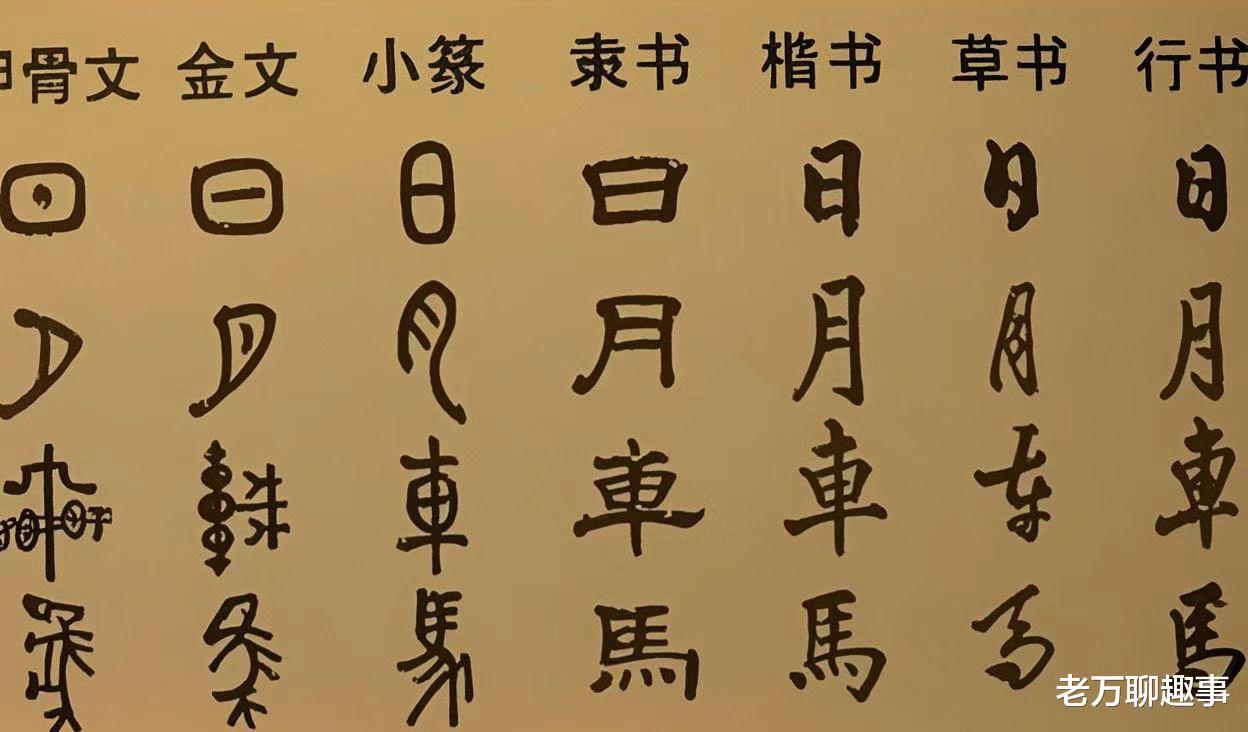 甲骨文 金文 小篆 隶书 楷书 草书 行书
日 日 日 日 日 日 日
月 月 月 月 月 月 月
車 車 車 車 車 车 車
馬 馬 馬 馬 馬 马 馬
老万聊趣事